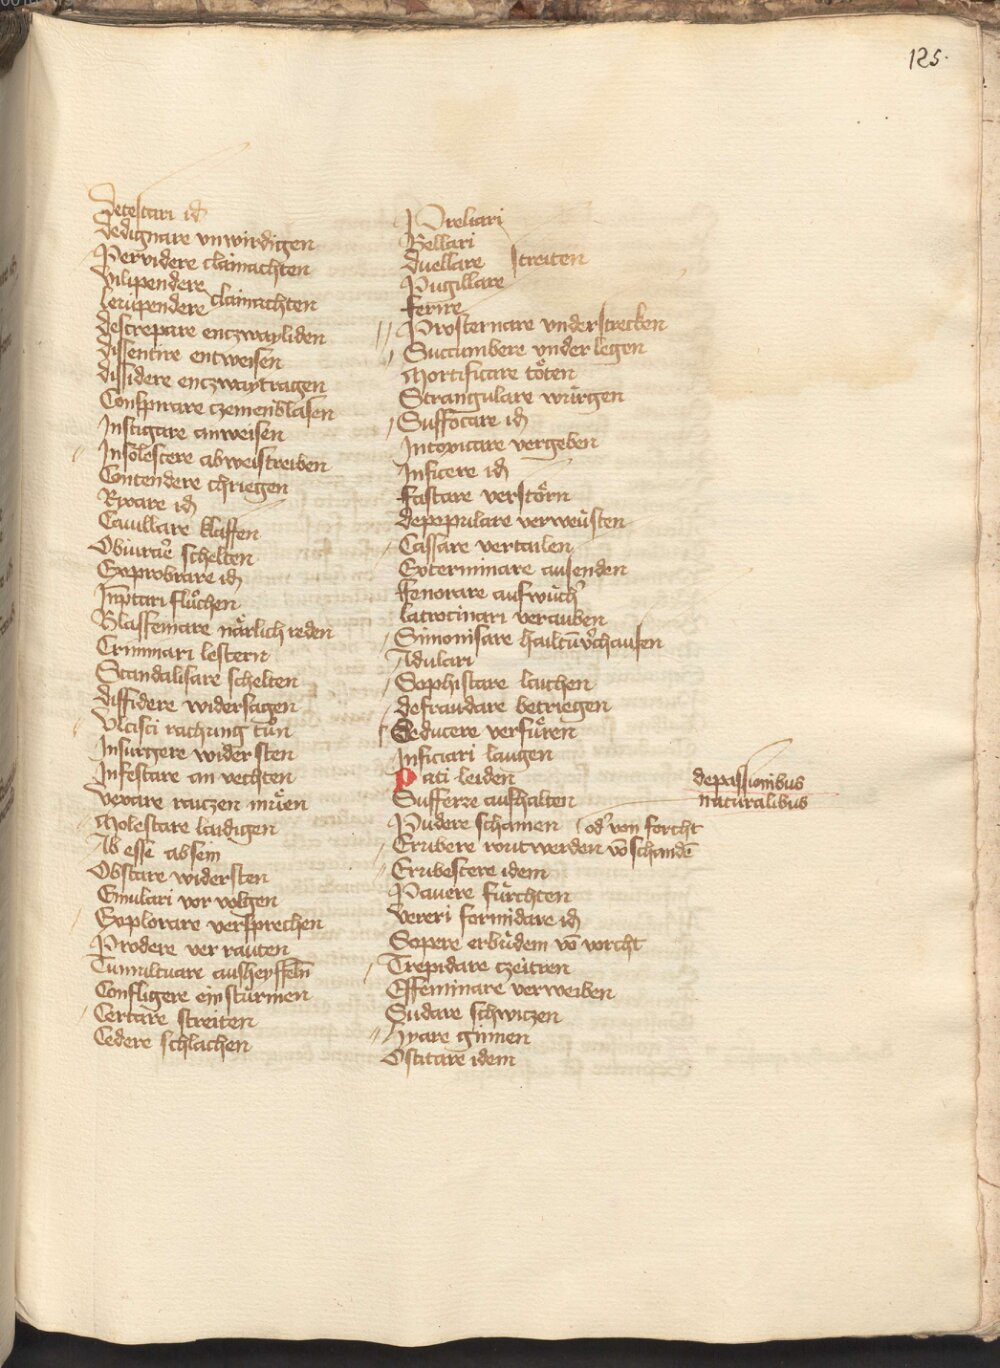 125.
Detestari id
Dedignare vnwirdigen
Pervidere clainachten
Vilipendere
Leuipendere clainachten
Descrepare enczwayliden
Dissentire entweisen
Dissidere enczwaytragen
Conspirare czemenblasen
Instigare anweisen
Insolescere abweistreiben
Contendere chriegen
Rixare id
Cauillare klaffen
Obiurare schelten
Exprobrare id
Inptari fluchen
Blasfemare närlich reden
Criminari lestern
Scandalisare schelten
Diffidere widersagen
Vlcisci rachung tun
Insurgere wider sten
Infestare an vechten
Vexare raiczen müen
Molestare laidigen
Ab esse absein
Obstare widersten
Emulari vor volgen
Explorare versprechen
Prodere ver raten
Tumultuare ausheyffeln
Confligere ein stürmen
Certare streiten
Cedere schlachen
Preliari
Bellari
Duellare streiten
Pugillare
Ferire
Prosternare vnderstrecken
Succumbere vnder legen
Mortificare töten
Strangulare würgen
Suffocare id
Intoxicare vergeben
Inficere id
Fastare verstörn
Depopulare verweüsten
Cassare vertailen
Exterminare ausenden
Fenorare aufwuch
Latrocinari verauben
Simonisare
Adulari
Sophistare laichen
Defraudare betriegen
Seducere verfüren
Inficiari laugen
Pati leiden
depassionibus
naturalibus
Sufferre aufhalten
Pudere schamen od von forcht
Erubere rontwerden vō schandē
Erubescere idem
Pauere fürchten
Vereri formidare id
Sopere erbidem vō vorcht
Trepidare czeitren
Effeminare verweiben
Sudare schwiczen
Hyare ginnen
Oscitare idem